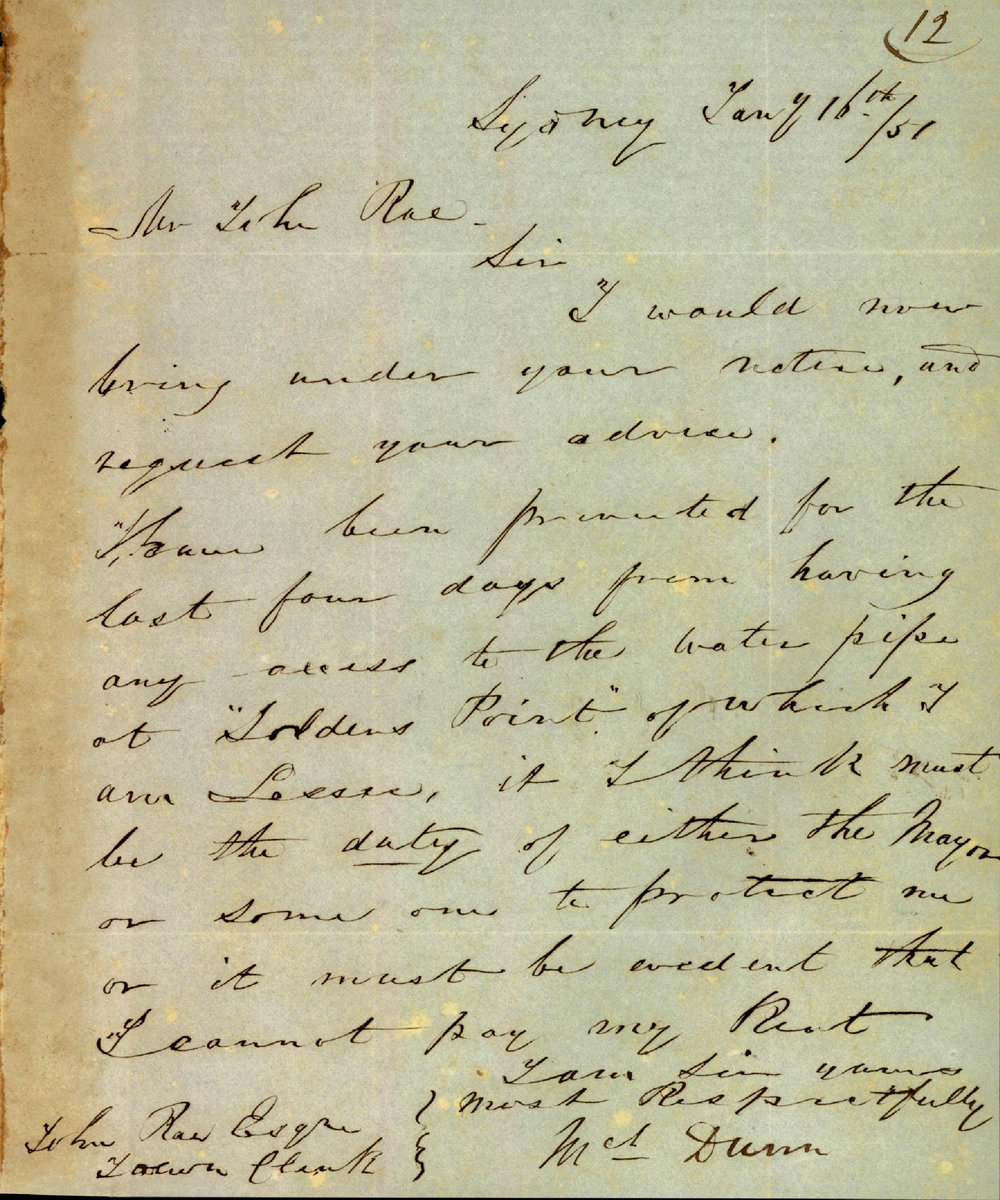 12
Sydney Jany 16th/51
Mr John Rae
Sir
I would now
bring under your notice, and
request your advice.
I have been prevented for the
last four days from having
any access to the water pipe
at "Soldens Point" of which I
am Lessee, it I think must
be the duty of either the Mayor
or some one to protect me
or it must be evedent that
I cannot pay my Rent
I am Sir yours
most Respectfully
Mcl Dunn
John Rae Esqre
Town Clerk